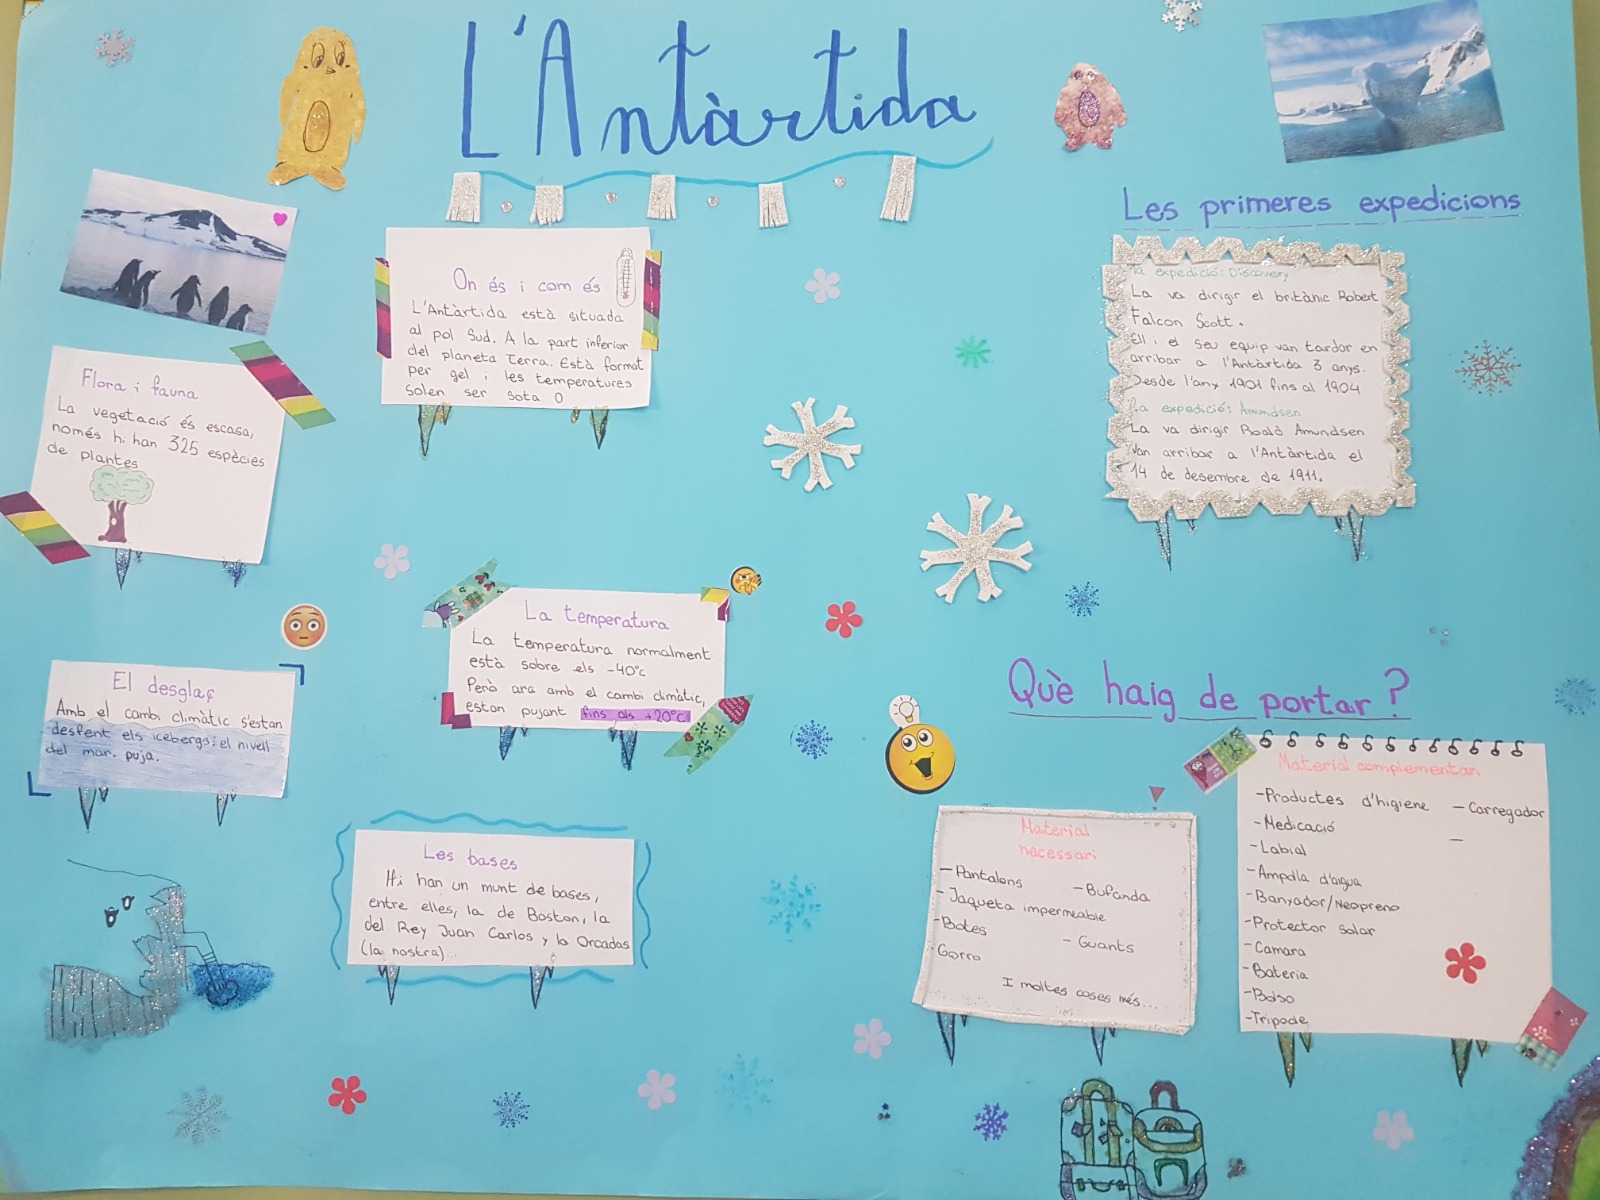 L'Antàrtida
On és i com és
L'Antàrtida està situada
al pol Sud. A la part inferior
del planeta Terra. Està format
per gel i les temperatures
solen ser sota 0
Flora i fauna
La vegetació és escasa,
només hi han 325 espècies
de plantes
La temperatura
La temperatura normalment
està sobre els -40°c
Però ara amb el cambi climàtic,
estan pujant fins als +20°c
El desglaç
Amb el cambi climàtic s'estan
desfent els icebergs i el nivell
del mar. puja.
Les bases
Hi han un munt de bases,
entre elles, la de Boston, la
del Rey Juan Carlos y la Orcadas
(la nostra)...
Les primeres expedicions
1a expedició: Discovery
La va dirigir el britànic Robert
Falcon Scott.
Ell i el seu equip van tardar en
arribar a l'Antàrtida 3 anys.
Desde l'any 1901 fins al 1904
2a expedició: Amundsen
La va dirigir Roald Amundsen
Van arribar a l'Antàrtida el
14 de desembre de 1911.
Què haig de portar?
Material
necessari
-Pantalons
-Bufanda
-Jaqueta impermeable
-Botes
-Guants
-Gorro
I moltes coses més...
Material complementari
-Productes d'higiene
-Carregador
-Medicació
-
-Labial
-Ampolla d'aigua
-Banyador/Neopreno
-Protector solar
-Camara
-Bateria
-Bolso
-Tripode